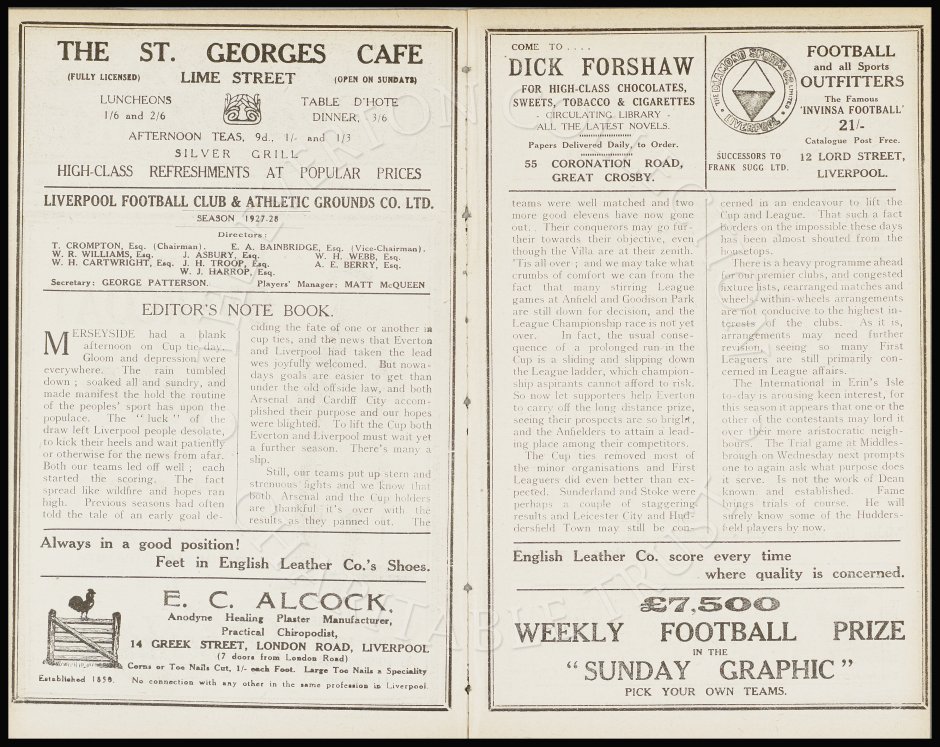 THE ST. GEORGES CAFE
(FULLY LICENSED) LIME STREET (OPEN ON SUNDAYS)
LUNCHEONS
1/6 and 2/6
TABLE D'HOTE
DINNER, 3/6
AFTERNOON TEAS, 9d., 1/- and 1/3
SILVER GRILL
HIGH-CLASS REFRESHMENTS AT POPULAR PRICES
LIVERPOOL FOOTBALL CLUB & ATHLETIC GROUNDS CO. LTD.
SEASON 1927-28
Directors:
T. CROMPTON, Esq. (Chairman). E. A. BAINBRIDGE, Esq. (Vice-Chairman).
W. R. WILLIAMS, Esq. J. ASBURY, Esq. W. H. WEBB, Esq.
W. H. CARTWRIGHT, Esq. J. H. TROOP, Esq. A. E. BERRY, Esq.
W. J. HARROP, Esq.
Secretary: GEORGE PATTERSON. Players' Manager: MATT McQUEEN
EDITOR'S NOTE BOOK.
MERSEYSIDE had a blank
afternoon on Cup tie day.
Gloom and depression were
everywhere. The rain tumbled
down; soaked all and sundry, and
made manifest the hold the routine
of the peoples' sport has upon the
populace. The "luck" of the
draw left Liverpool people desolate,
to kick their heels and wait patiently
or otherwise for the news from afar.
Both our teams led off well; each
started the scoring. The fact
spread like wildfire and hopes ran
high. Previous seasons had often
told the tale of an early goal de-
ciding the fate of one or another in
cup ties, and the news that Everton
and Liverpool had taken the lead
wes joyfully welcomed. But nowa-
days goals are easier to get than
under the old offside law, and both
Arsenal and Cardiff City accom-
plished their purpose and our hopes
were blighted. To lift the Cup both
Everton and Liverpool must wait yet
a further season. There's many a
slip.
Still, our teams put up stern and
strenuous fights and we know that
both Arsenal and the Cup holders
are thankful it's over with the
results as they panned out. The
Always in a good position!
Feet in English Leather Co.'s Shoes.
E. C. ALCOCK.
Anodyne Healing Plaster Manufacturer,
Practical Chiropodist,
14 GREEK STREET, LONDON ROAD, LIVERPOOL
(7 doors from London Road)
Corns or Toe Nails Cut, 1/- each Foot. Large Toe Nails a Speciality
Established 1850. No connection with any other in the same profession in Liverpool.
COME TO . . . .
DICK FORSHAW
FOR HIGH-CLASS CHOCOLATES,
SWEETS, TOBACCO & CIGARETTES
- CIRCULATING LIBRARY -
ALL THE LATEST NOVELS.
Papers Delivered Daily, to Order.
55 CORONATION ROAD,
GREAT CROSBY.
THE DIAMOND SPORTS CO. LIMITED
LIVERPOOL
SUCCESSORS TO
FRANK SUGG LTD.
FOOTBALL
and all Sports
OUTFITTERS
The Famous
'INVINSA FOOTBALL'
21/-
Catalogue Post Free.
12 LORD STREET,
LIVERPOOL.
teams were well matched and two
more good elevens have now gone
out. Their conquerors may go fur-
ther towards their objective, even
though the Villa are at their zenith.
'Tis all over; and we may take what
crumbs of comfort we can from the
fact that many stirring League
games at Anfield and Goodison Park
are still down for decision, and the
League Championship race is not yet
over. In fact, the usual conse-
quence of a prolonged run in the
Cup is a sliding and slipping down
the League ladder, which champion-
ship aspirants cannot afford to risk.
So now let supporters help Everton
to carry off the long distance prize,
seeing their prospects are so bright,
and the Anfielders to attain a lead-
ing place among their competitors.
The Cup ties removed most of
the minor organisations and First
Leaguers did even better than ex-
pected. Sunderland and Stoke were
perhaps a couple of staggering
results and Leicester City and Hud-
dersfield Town may still be con-
cerned in an endeavour to lift the
Cup and League. That such a fact
borders on the impossible these days
has been almost shouted from the
housetops.
There is a heavy programme ahead
for our premier clubs, and congested
fixture lists, rearranged matches and
wheels-within-wheels arrangements
are not conducive to the highest in-
terests of the clubs. As it is,
arrangements may need further
revision, seeing so many First
Leaguers are still primarily con-
cerned in League affairs.
The International in Erin's Isle
to-day is arousing keen interest, for
this season it appears that one or the
other of the contestants may lord it
over their more aristocratic neigh-
bours. The Trial game at Middles-
brough on Wednesday next prompts
one to again ask what purpose does
it serve. Is not the work of Dean
known and established. Fame
brings trials of course. He will
surely know some of the Hudders-
field players by now.
English Leather Co. score every time
where quality is concerned.
£7,500
WEEKLY FOOTBALL PRIZE
IN THE
"SUNDAY GRAPHIC"
PICK YOUR OWN TEAMS.